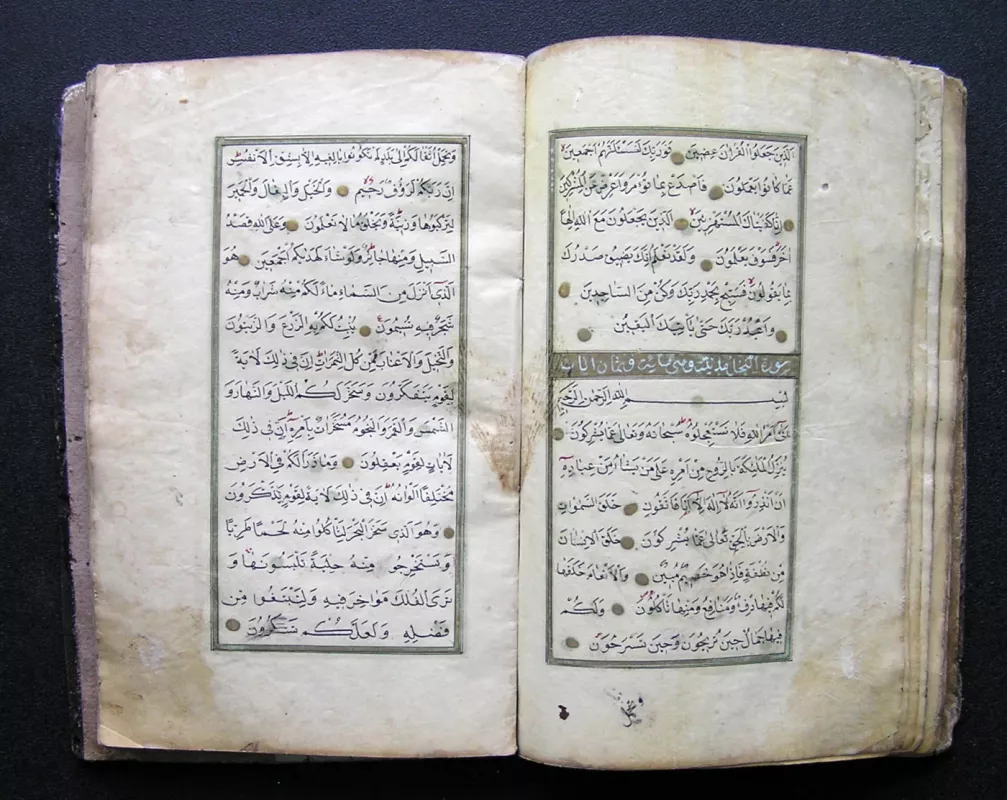 الذين جعلوا القران عضين فوربك لنسئلنهم اجمعين
عما كانوا يعملون فاصدع بما تؤمر واعرض عن المشركين
انا كفيناك المستهزئين الذين يجعلون مع الله الها
اخر فسوف يعلمون ولقد نعلم انك يضيق صدرك
بما يقولون فسبح بحمد ربك وكن من الساجدين
واعبد ربك حتى ياتيك اليقين
سورة النحل مكية وهى مائة وثمان ايات
بسم الله الرحمن الرحيم
اتى امر الله فلا تستعجلوه سبحانه وتعالى عما يشركون
ينزل الملئكة بالروح من امره على من يشاء من عباده
ان انذروا انه لا اله الا انا فاتقون خلق السموات
والارض بالحق تعالى عما يشركون خلق الانسان
من نطفة فاذا هو خصيم مبين والانعام خلقها
لكم فيها دفء ومنافع ومنها تاكلون ولكم
فيها جمال حين تريحون وحين تسرحون
وتحمل
وتحمل اثقالكم الى بلد لم تكونوا بالغيه الا بشق الانفس
ان ربكم لرؤف رحيم والخيل والبغال والحمير
لتركبوها وزينة ويخلق ما لا تعلمون وعلى الله قصد
السبيل ومنها جائر ولو شاء لهديكم اجمعين هو
الذى انزل من السماء ماء لكم منه شراب ومنه
شجر فيه تسيمون ينبت لكم به الزرع والزيتون
والنخيل والاعناب ومن كل الثمرات ان فى ذلك لاية
لقوم يتفكرون وسخر لكم الليل والنهار و
الشمس والقمر والنجوم مسخرات بامره ان فى ذلك
لايات لقوم يعقلون وما ذرا لكم فى الارض
مختلفا الوانه ان فى ذلك لاية لقوم يذكرون
وهو الذى سخر البحر لتاكلوا منه لحما طريا
وتستخرجوا منه حلية تلبسونها و
ترى الفلك مواخر فيه ولتبتغوا من
فضله ولعلكم تشكرون